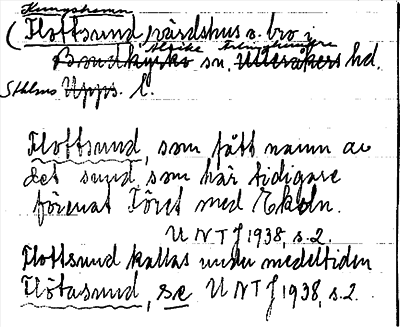 Kungshamn
(Flottsund värdshus o. bro i
Alsike Ærlinghundra
Bondkyrko sn. Ulleråkers hd.
Sthlms Upps. l.
Flottsund, som fått namn av
det sund, som här tidigare
förenat Föret med Ekoln.
UNTJ 1938, s. 2.
Flottsund kallas under medeltiden
Flötasund, se UNTJ 1938, s. 2.